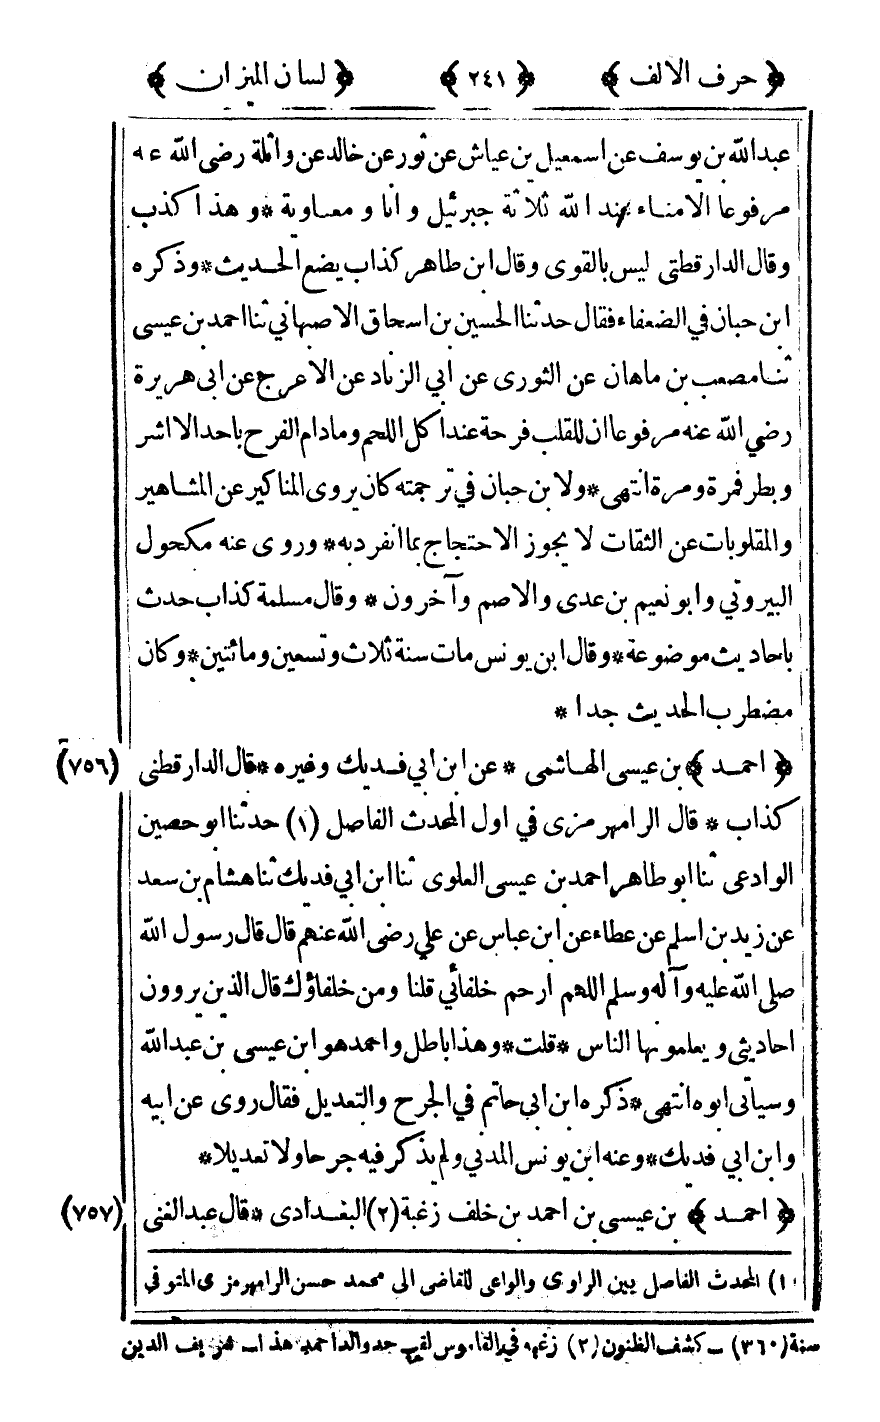 ﴿ حرف الالف ﴾ ﴿ ٢٤١ ﴾ ﴿ لسان الميزان ﴾
عبدالله بن يوسف عن اسمعيل بن عياش عن ثور عن خالد عن واثلة رضى الله عنه
مرفوعا الامناء عند الله ثلاثة جبرئيل وانا و معاوية * و هذا كذب
وقال الدارقطنى ليس بالقوى وقال ابن طاهر كذاب يضع الحديث * وذكره
ابن حبان في الضعفاء فقال حدثنا الحسين بن اسحاق الاصبهاني ثنا احمد بن عيسى
ثنا مصعب بن ماهان عن الثورى عن ابي الزناد عن الاعرج عن ابى هريرة
رضي الله عنه مرفوعا ان للقلب فرحة عند اكل اللحم ومادام الفرح باحد الا اشر
وبطر فمرة ومرة انتهى * ولابن حبان في ترجمته كان يروى المناكير عن المشاهير
والمقلوبات عن الثقات لا يجوز الاحتجاج بما انفرد به * وروى عنه مكحول
البيروتي وابو نعيم بن عدى والاصم وآخرون * وقال مسلمة كذاب حدث
باحاديث موضوعة * وقال ابن يونس مات سنة ثلاث وتسعين ومائتين * وكان
مضطرب الحديث جدا *
﴿ احمد ﴾ بن عيسى الهاشمى * عن ابن ابي فديك وغيره * قال الدارقطنى (٧٥٦)
كذاب * قال الرامهرمزى في اول المحدث الفاصل (١) حدثنا ابو حصين
الوادعى ثنا ابو طاهر احمد بن عيسى العلوى ثنا ابن ابي فديك ثنا هشام بن سعد
عن زيد بن اسلم عن عطاء عن ابن عباس عن علي رضى الله عنهم قال قال رسول الله
صلى الله عليه وآله وسلم اللهم ارحم خلفائي قلنا ومن خلفاؤك قال الذين يروون
احاديثى ويعلمونها الناس * قلت * وهذا باطل واحمد هو ابن عيسى بن عبدالله
وسياتى ابوه انتهى * ذكره ابن ابي حاتم في الجرح والتعديل فقال روى عن ابيه
وابن ابي فديك * وعنه ابن يونس المدني ولم يذكر فيه جرحا ولا تعديلا *
﴿ احمد ﴾ بن عيسى بن احمد بن خلف زغبة (٢) البغدادى * قال عبد الغنى (٧٥٧)
(١) المحدث الفاصل بين الراوى والواعى للقاضى ابى محمد حسن الرامهرمزى المتوفي
سنة (٣٦٠) ــ كشف الظنون (٢) زغبه في القاموس لقب جد والد احمد هذا ــ شريف الدين